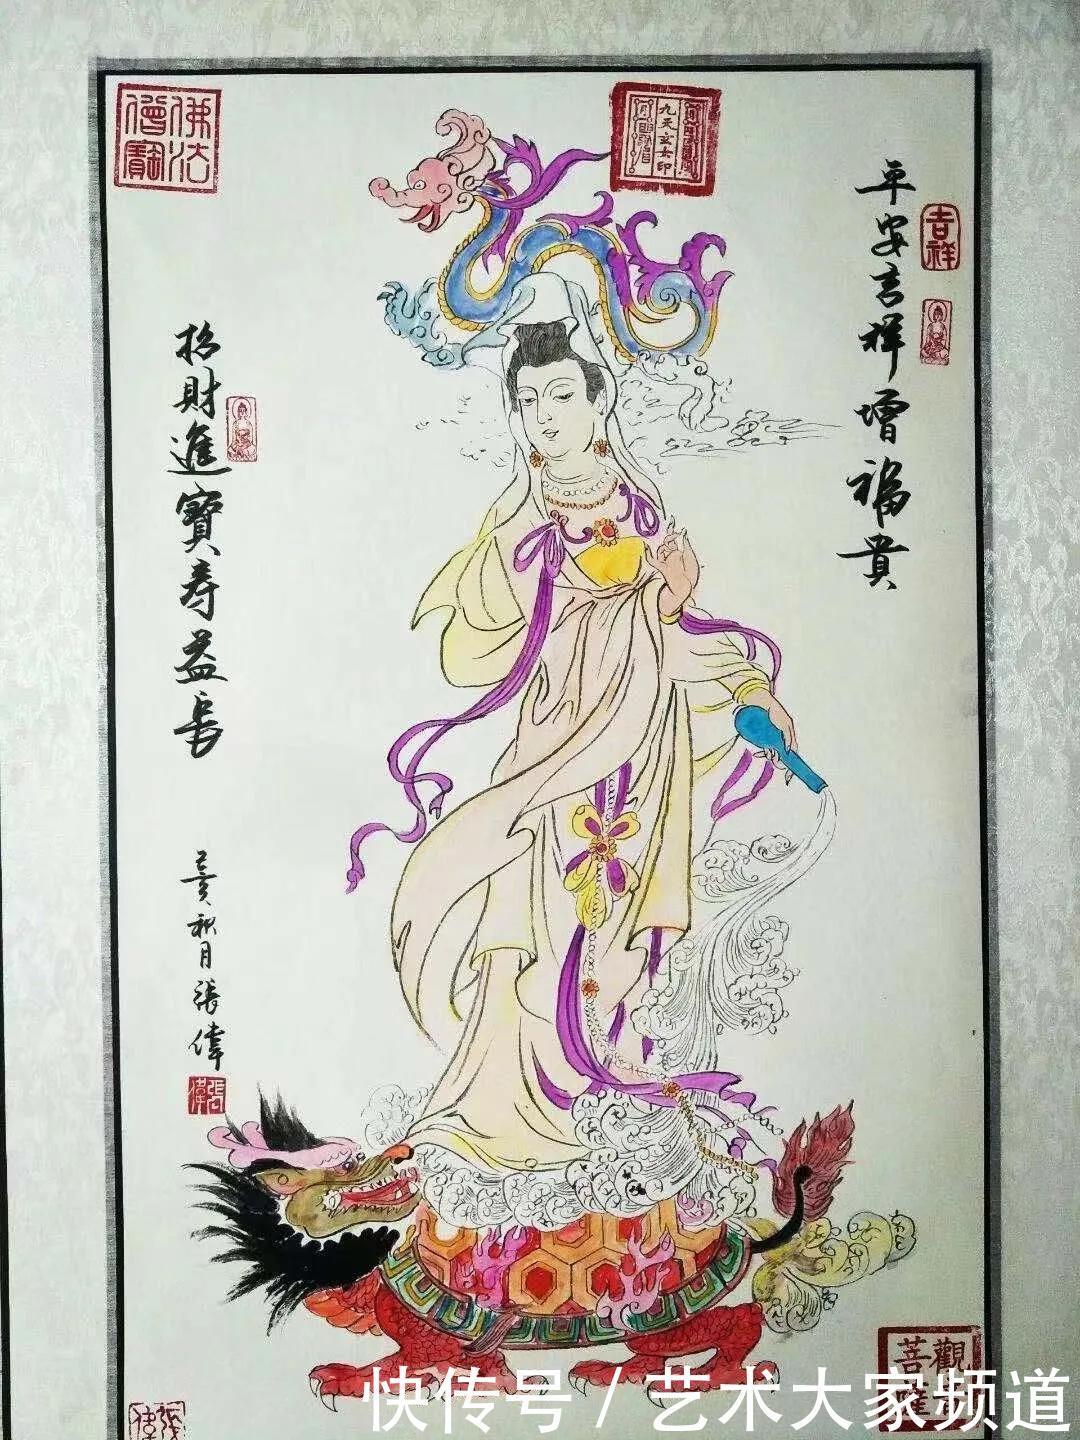 平安吉祥增福貴
吉祥
九天玄女印
佛法僧寶
招財進寶寿益長
己亥秋月張偉
張偉
觀音菩薩
張偉
快传号/艺术大家频道